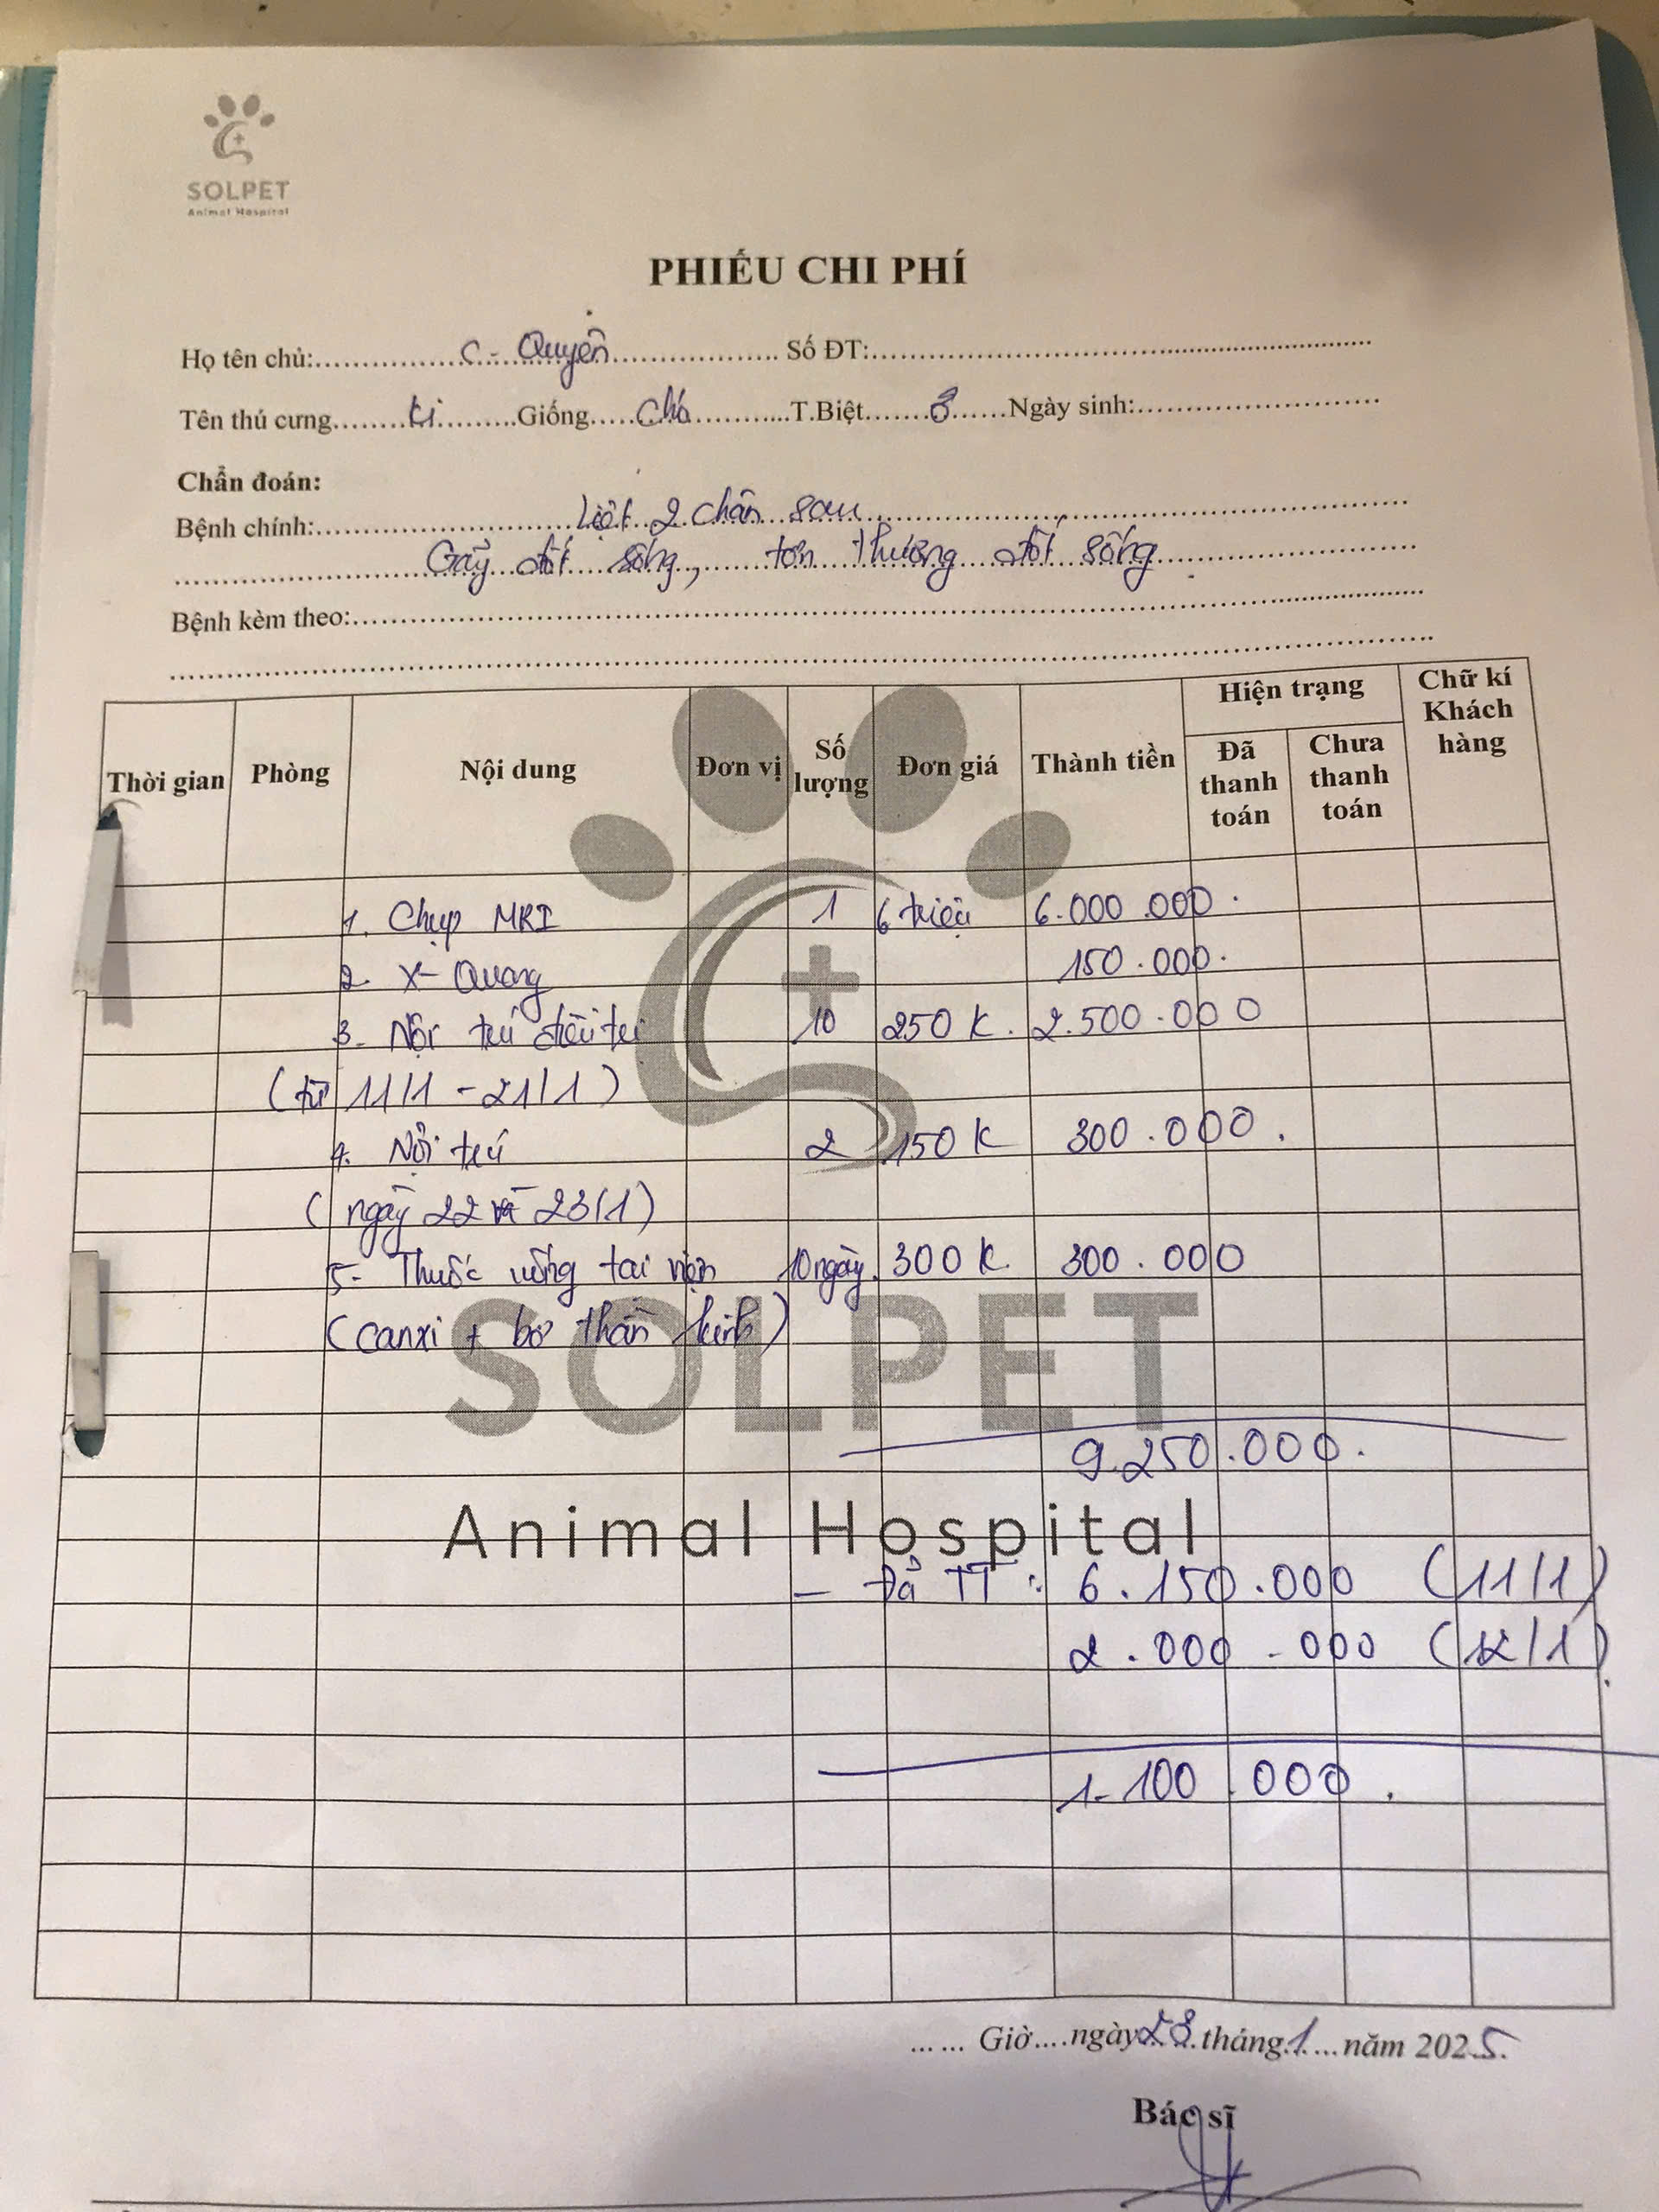 SOLPET
Animal Hospital
PHIẾU CHI PHÍ
Họ tên chủ: C. Quyên Số ĐT:
Tên thú cưng Ki Giống Chó T.Biệt ♂ Ngày sinh:
Chẩn đoán:
Bệnh chính: Liệt 2 chân sau
Gãy đốt sống, tổn thương đốt sống
Bệnh kèm theo:
Thời gian Phòng Nội dung Đơn vị Số lượng Đơn giá Thành tiền Hiện trạng Đã thanh toán Chưa thanh toán Chữ kí Khách hàng
1. Chụp MRI 1 6 triệu 6.000.000.
2. X-Quang 150.000.
3. Nội trú điều trị 10 250K. 2.500.000
(từ 11/1 - 21/1)
4. Nội trú 2 150K 300.000.
(ngày 22 và 23/1)
5. Thuốc uống tại viện 10 ngày. 300K. 300.000
(canxi + bổ thần kinh)
SOLPET
9.250.000.
Animal Hospital
- Đã TT: 6.150.000 (11/1)
2.000.000 (12/1)
1.100.000.
...... Giờ....ngày 23 tháng 1 năm 2025
Bác sĩ